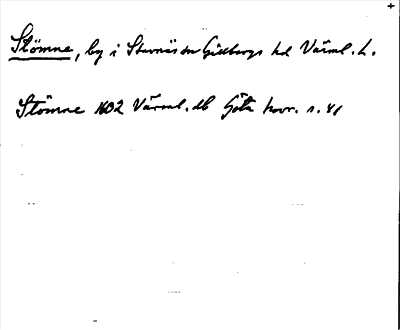 Stömne, by i Stavnäs sn Gillbergs hd Värml. L.
Stömne 1602 Värml. db Göta hovr. s. 41